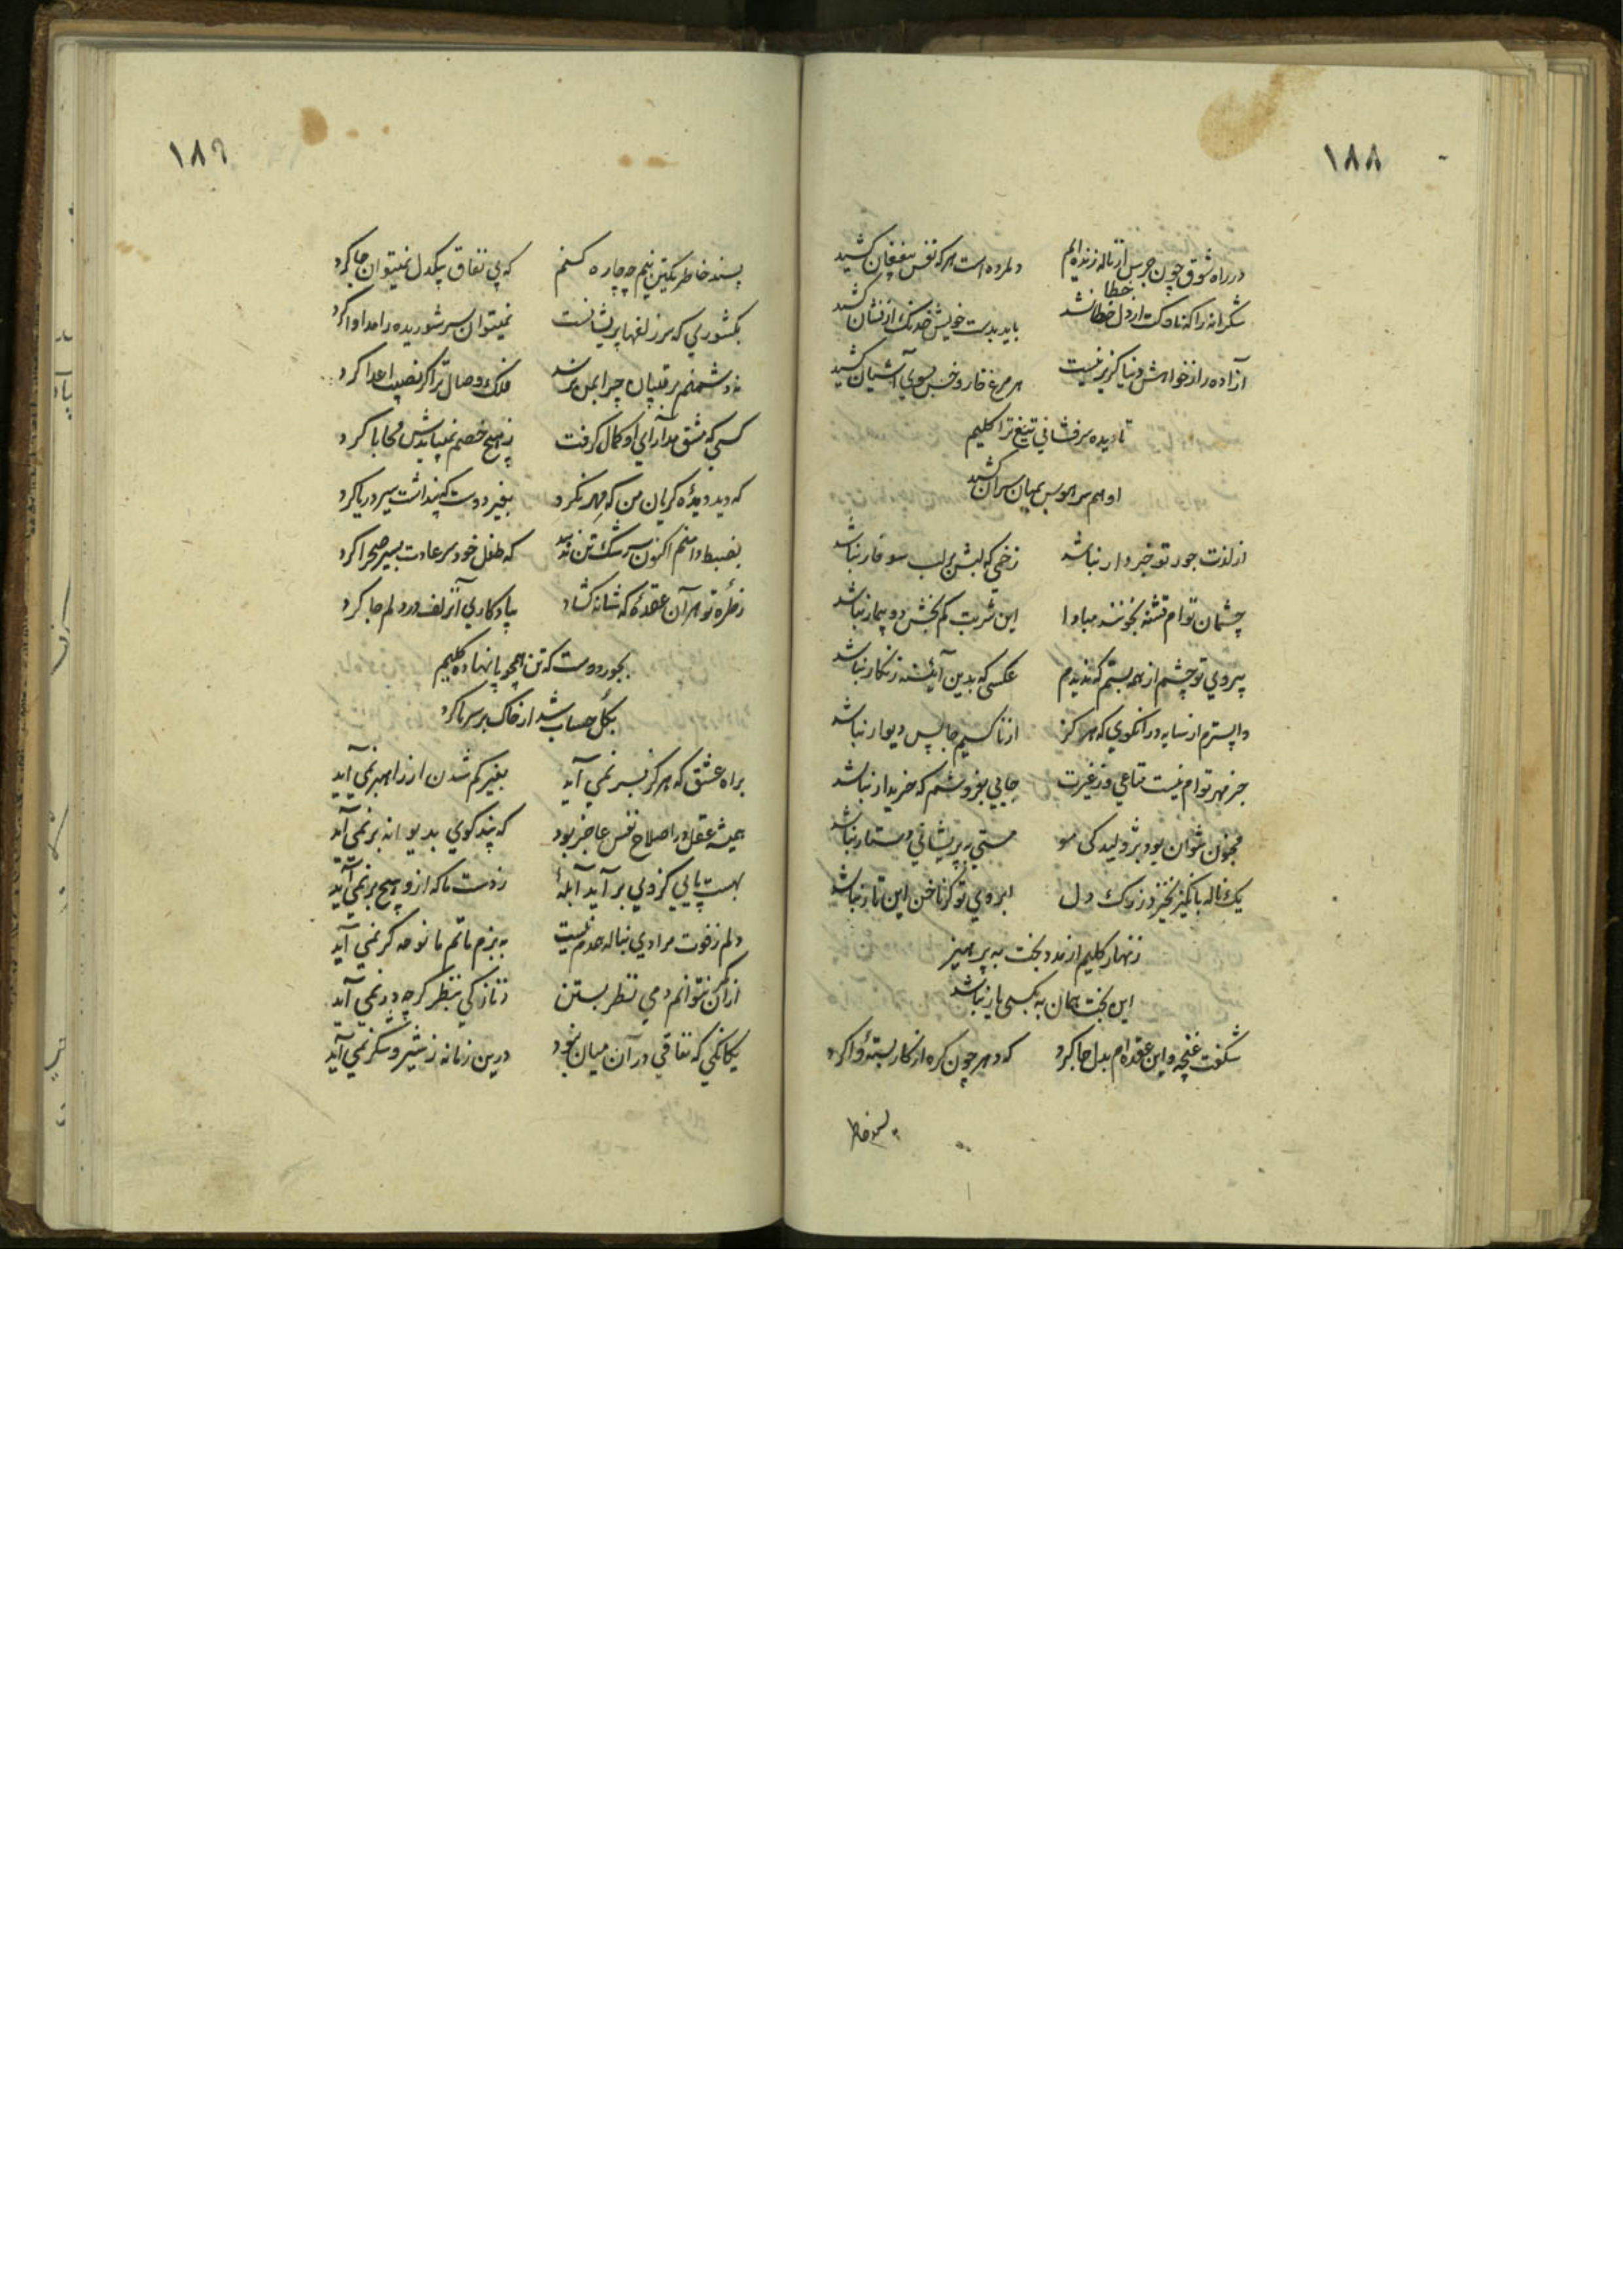 ۱۸۸
در راه شوق چون جرس از ناله زنده‌ایم دلمرده است هر که نفس بیفغان کشید
خطا
شکرانه را که ناوکت از دل خطا نشد باید بدست خویش خدنک از نشان کشید
آزاده را ز خواهش دنیا کزیر نیست هر مرغ خار و خس بسوی آشیان کشید
تا دیده سرفشانی تیغ ترا کلیم
او هم سر هوس بمیان سران کشید
از لذت جور تو خبردار نباشد زخمی که لبش بر لب سوفار نباشد
چشمان تو ام تشنه بخونند مبادا این شربت کم بخش دو بیمار نباشد
بیروی تو چشم از همه بستم که ندیدم عکسی که بدین آینه زنکار نباشد
واپسترم از سایه در انکوی که هرکز از ناکسیم جا پس دیوار نباشد
جز مهر تو ام نیست متاعی و ز غیرت جایی بفروشم که خریدار نباشد
مجنون نتوان بود بژولیدکی مو مستی به پریشانی دستار نباشد
یک ناله بانکیز نخیزد ز رک دل ابروی تو کر ناخن این تار نباشد
زنهار کلیم از مدد بخت بپرهیز
این بخت همان به بکسی یار نباشد
شکفت غنچه و این عقده‌ام بدل جا کرد که دهر چون کره از کار بسته‌ٔ وا کرد
پسند خاطر
۱۸۹
پسند خاطر یکتن نیم چه چاره کنم که بی نفاق بیکدل نمیتوان جا کرد
بکشوری که سر زلفها پریشانست نمیتوان سر شوریده را مداوا کرد
نه دشمنم برقیبان چرا بمن نرسد فلک وصال ترا کر نصیب اعدا کرد
کسی که مشق مدارای او کمال کرفت ز هیچ خصم نمیبایدش محابا کرد
که دید دیده کریان من که مهر نکرد بغیر دوست که پنداشت سیر دریا کرد
بضبط دامنم اکنون سرشک تن ندهد که طفل خودسر عادت بسیر صحرا کرد
ز طره تو هر آن عقده‌ٔ که شانه کشاد بیادکاری آنزلف در دلم جا کرد
بجور دوست که تن همچو پا نهاده کلیم
بکل حساب شد ار خاک بر سر ما کرد
براه عشق که هرکز بسر نمی آید بغیر کم شدن از راهبر نمی آید
همیشه عقل در اصلاح نفس عاجز بود که پندکوی بدیوانه بر نمی آید
بهست پایی کز وی بر آید آبله‌ٔ ز دست ما که ازو هیچ بر نمی آید
دلم ز فوت مرادی بناله همدم نیست به بزم ماتم ما نوحه کر نمی آید
از آن کمر نتوانم دمی نظر بستن ز نازکی بنظر کرچه در نمی آید
یکانکی که نفاقی در آن میان نبود درین زمانه ز شیر و شکر نمی آید